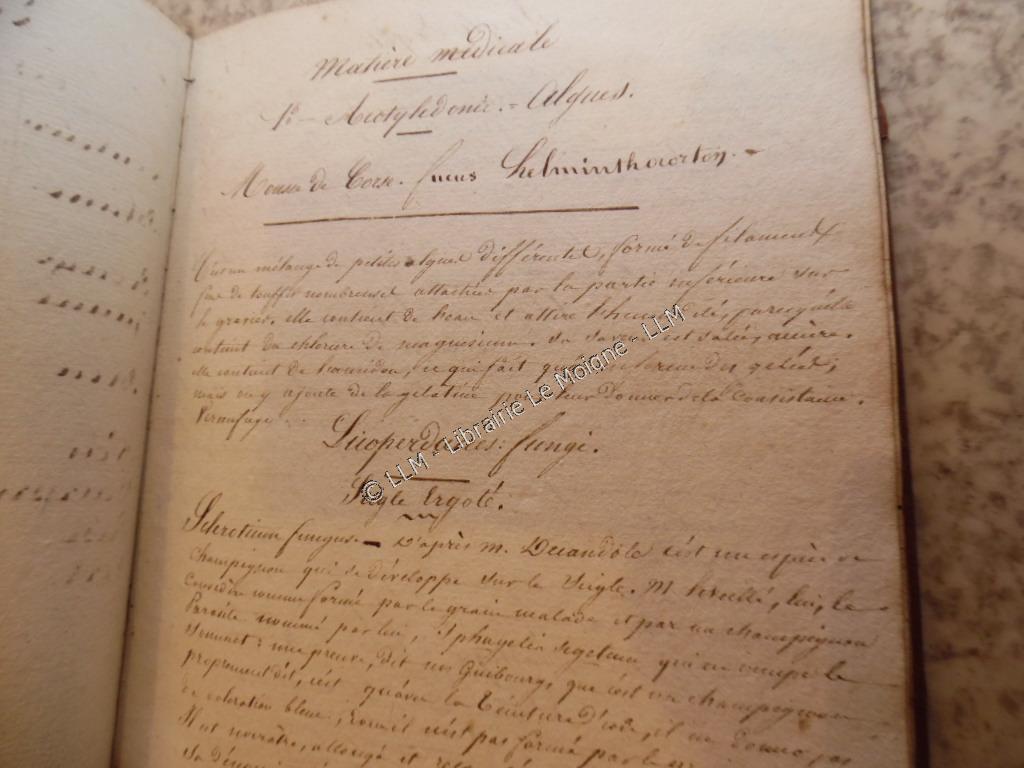 Matière médicale
1° - Acotyledonée. = Algues.
Mousse de Corse. fucus helminthocorton. -
C'est un mélange de petites algues différentes, formé de filaments
fixé de touffes nombreuses attachées par la partie inférieure sur
le gravier. elle contient de l'eau et attire l'humidité, parcequ'elle
contient du chlorure de magnésium. Sa saveur est salée, amère.
elle contient de l'amidon, ce qui fait des gelées;
mais on y ajoute de la gélatine pour leur donner de la consistance.
Vermifuge.
Licoperdacées: fungi.
Seigle Ergoté.
Sclerotium fungus - D'après M. Decandole c'est une espèce de
champignon qui se développe sur le seigle. M. lui, le
considère comme formé par le grain malade et par un champignon
parasite nommé par lui, Sphacelia segetum qui en occupe le
sommet: une preuve, dit M. Guibourg, que c'est un champignon
proprement dit, c'est qu'avec la teinture d'iode, il ne donne pas
de coloration bleue; il n'est pas formé par le
Il est noirâtre, allongé et
© LLM - Librairie Le Moigne - LLM